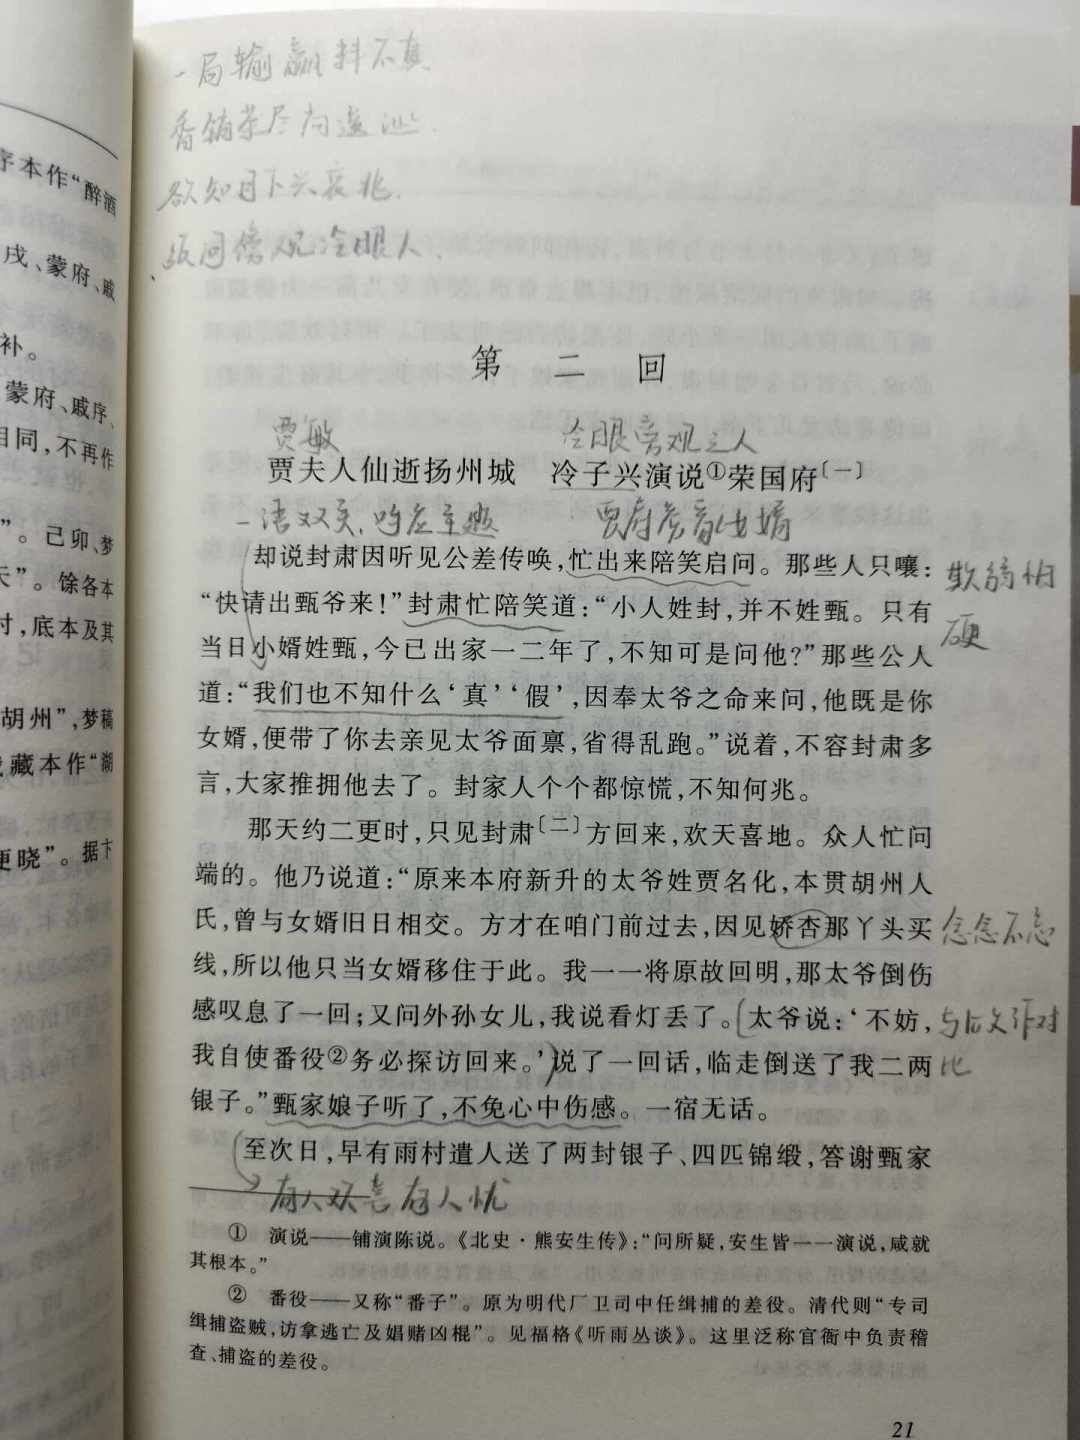 序本作“醉酒
戌、蒙府、戚
补。
蒙府、戚序、
相同，不再作
”。己卯、梦
天”。馀各本
时，底本及其
胡州”，梦稿
藏本作“湖
更晓”。据卞
一局输赢料不真，
香销茶尽尚逡巡。
欲知目下兴衰兆，
须问傍观冷眼人。
第 二 回
贾敏 冷眼旁观之人
贾夫人仙逝扬州城 冷子兴演说①荣国府〔一〕
一语双关，呼应主题 贾府旁育女婿
却说封肃因听见公差传唤，忙出来陪笑启问。那些人只嚷：
欺弱怕
“快请出甄爷来！”封肃忙陪笑道：“小人姓封，并不姓甄。只有
硬
当日小婿姓甄，今已出家一二年了，不知可是问他？”那些公人
道：“我们也不知什么‘真’‘假’，因奉太爷之命来问，他既是你
女婿，便带了你去亲见太爷面禀，省得乱跑。”说着，不容封肃多
言，大家推拥他去了。封家人个个都惊慌，不知何兆。
那天约二更时，只见封肃〔二〕方回来，欢天喜地。众人忙问
端的。他乃说道：“原来本府新升的太爷姓贾名化，本贯胡州人
氏，曾与女婿旧日相交。方才在咱门前过去，因见娇杏那丫头买
念念不忘
线，所以他只当女婿移住于此。我一一将原故回明，那太爷倒伤
感叹息了一回；又问外孙女儿，我说看灯丢了。太爷说：‘不妨，
与后文作对
我自使番役②务必探访回来。’说了一回话，临走倒送了我二两
比
银子。”甄家娘子听了，不免心中伤感。一宿无话。
至次日，早有雨村遣人送了两封银子、四匹锦缎，答谢甄家
有人欢喜有人忧
① 演说——铺演陈说。《北史·熊安生传》：“问所疑，安生皆一一演说，咸就
其根本。”
② 番役——又称“番子”。原为明代厂卫司中任缉捕的差役。清代则“专司
缉捕盗贼，访拿逃亡及娼赌凶棍”。见福格《听雨丛谈》。这里泛称官衙中负责稽
查、捕盗的差役。
21